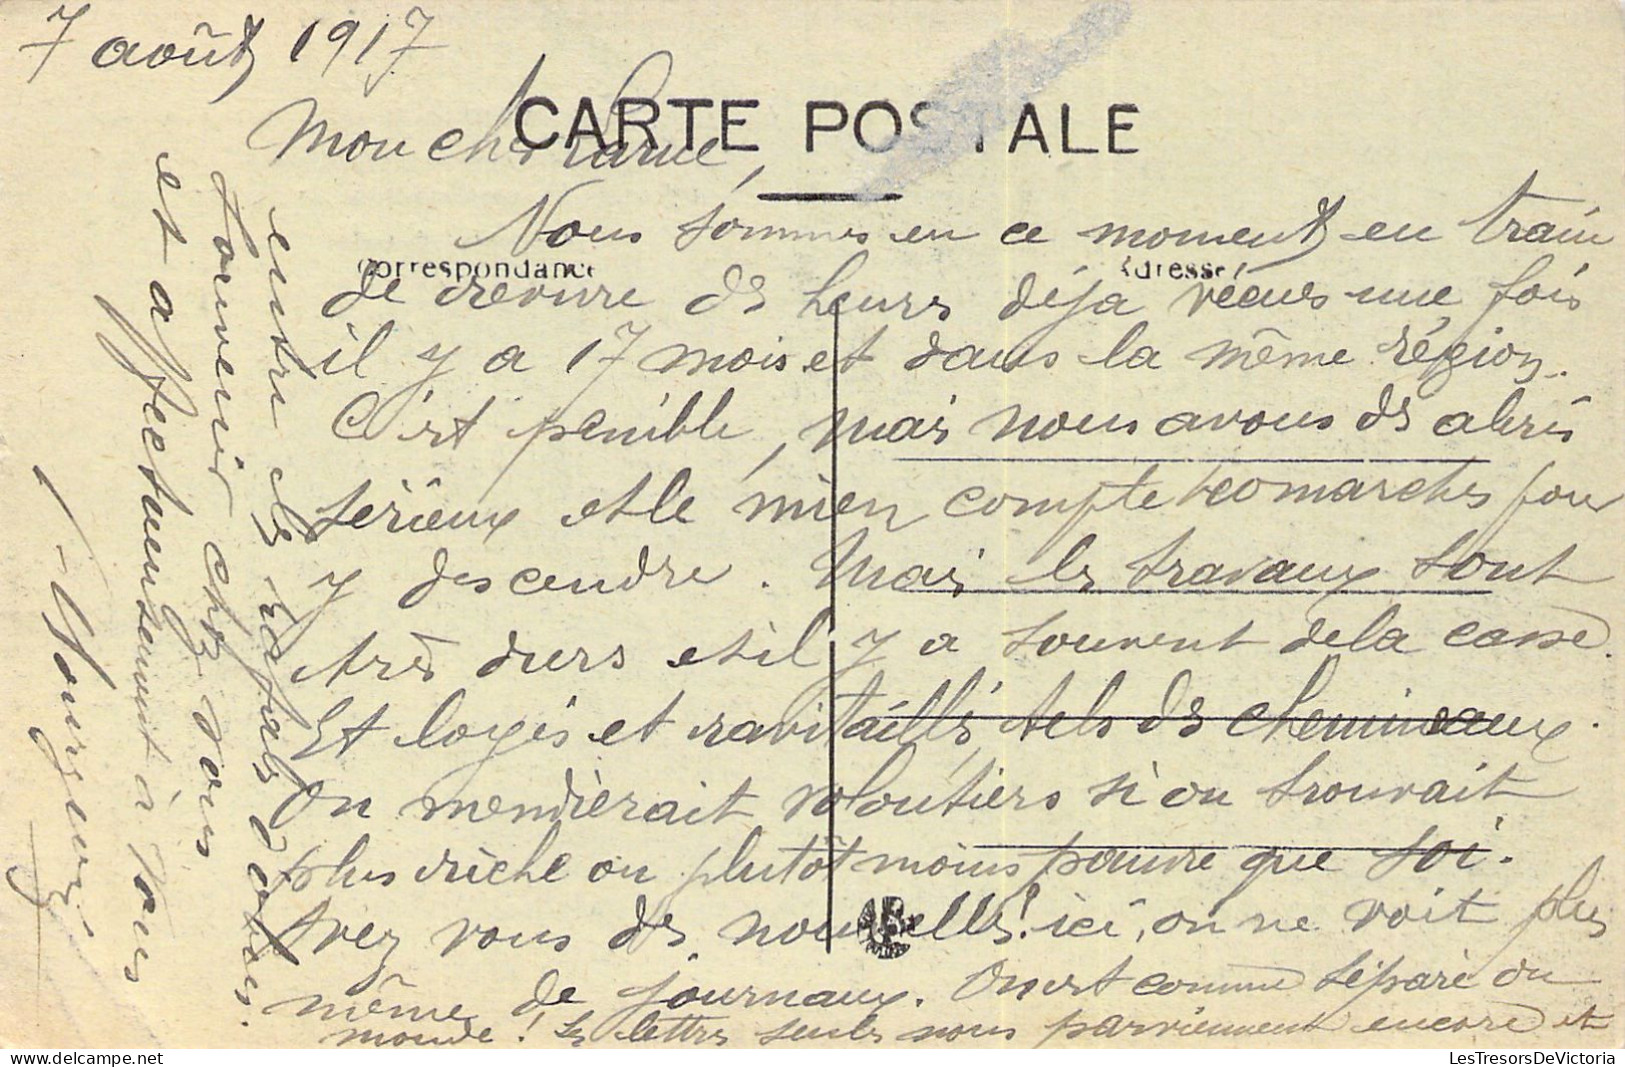 7 août 1917
CARTE POSTALE
Mon cher Larue,
Nous sommes en ce moment en train
Correspondance
Adresse
de revivre des heures déjà vécues une fois
il y a 17 mois et dans la même région.
C'est pénible, mais nous avons des abris
sérieux et le mien compte 40 marches pour
y descendre. Mais les travaux sont
très durs et il y a souvent de la casse.
Et logés et ravitaillés, tels des chemineaux.
On mendierait volontiers si on trouvait
plus riche ou plutôt moins pauvre que soi.
Avez vous des nouvelles? ici, on ne voit plus
même de journaux. On est comme séparé du
monde! Les lettres seules nous parviennent encore et
entre
souvenir chez vous
et affectueusement à vous
LesTresorsDeVictoria